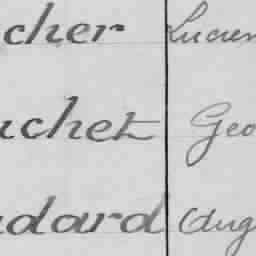 cher Lucien
uchet Geo
udard Aug